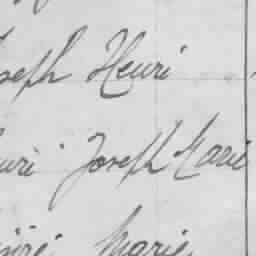 Joseph Henri
Henri Joseph Marie
Marie